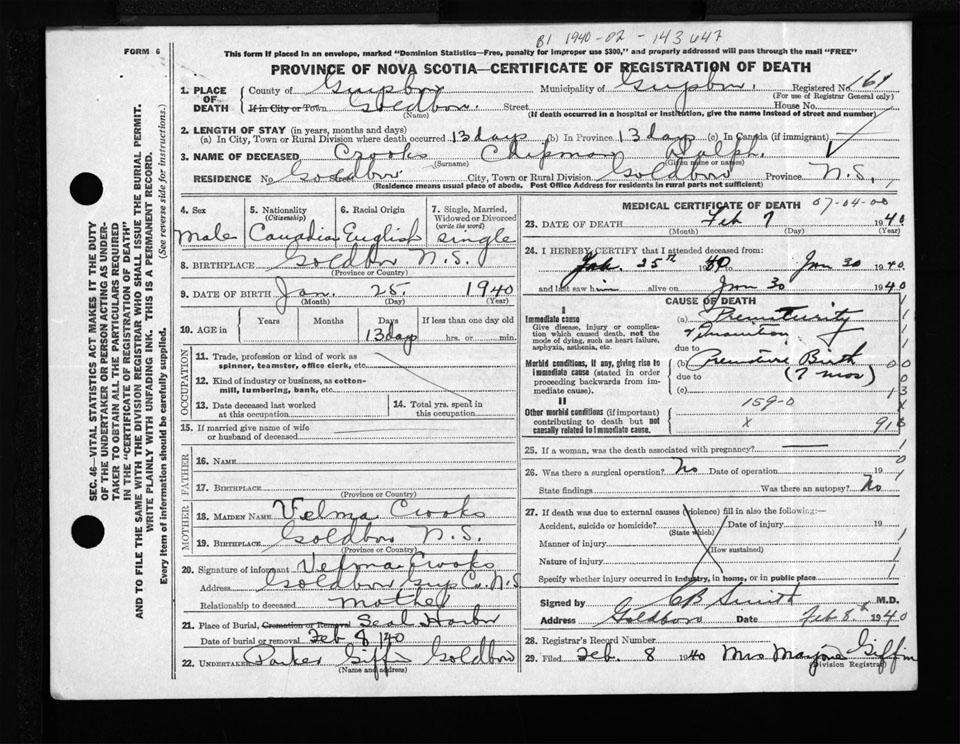 B1 1940-02-143647
FORM 6
This form if placed in an envelope, marked "Dominion Statistics—Free, penalty for improper use $300," and properly addressed will pass through the mail "FREE"
PROVINCE OF NOVA SCOTIA—CERTIFICATE OF REGISTRATION OF DEATH
1. PLACE OF DEATH
County of Guysboro Municipality of Guysboro. Registered No. 169
(For use of Registrar General only)
If in City or Town Goldboro. Street House No.
(Name) (If death occurred in a hospital or institution, give the name instead of street and number)
2. LENGTH OF STAY (in years, months and days)
(a) In City, Town or Rural Division where death occurred 13 days (b) In Province 13 days (c) In Canada (if immigrant)
3. NAME OF DECEASED Crooks Chipman Ralph.
(Surname) (Given name or names)
RESIDENCE No. Goldboro Street City, Town or Rural Division Goldboro Province N.S.
(Residence means usual place of abode. Post Office Address for residents in rural parts not sufficient)
SEC. 46—VITAL STATISTICS ACT MAKES IT THE DUTY
OF THE UNDERTAKER OR PERSON ACTING AS UNDER-
TAKER TO OBTAIN ALL THE PARTICULARS REQUIRED
IN THE "CERTIFICATE OF REGISTRATION OF DEATH"
AND TO FILE THE SAME WITH THE DIVISION REGISTRAR WHO SHALL ISSUE THE BURIAL PERMIT.
WRITE PLAINLY WITH UNFADING INK. THIS IS A PERMANENT RECORD.
Every item of information should be carefully supplied. (See reverse side for instructions.)
4. Sex 5. Nationality (Citizenship) 6. Racial Origin 7. Single, Married, Widowed or Divorced (write the word)
Male Canadian English single
8. BIRTHPLACE Goldboro N.S.
(Province or Country)
9. DATE OF BIRTH Jan. 25 1940
(Month) (Day) (Year)
10. AGE in Years Months Days If less than one day old
13 days hrs. or min.
OCCUPATION
11. Trade, profession or kind of work as
spinner, teamster, office clerk, etc.
12. Kind of industry or business, as cotton-
mill, lumbering, bank, etc.
13. Date deceased last worked
at this occupation
14. Total yrs. spent in
this occupation
15. If married give name of wife
or husband of deceased
FATHER
16. NAME
17. BIRTHPLACE
(Province or Country)
MOTHER
18. MAIDEN NAME Velma Crooks
19. BIRTHPLACE Goldboro N.S.
(Province or Country)
20. Signature of informant Velma Crooks
Address Goldboro Guys Co. N.S
Relationship to deceased mother
21. Place of Burial, Cremation or Removal Seal Harbor
Date of burial or removal Feb 8/40
22. UNDERTAKER Parker Giffin Goldboro
(Name and address)
MEDICAL CERTIFICATE OF DEATH 07-04-00
23. DATE OF DEATH Feb 7 1940
(Month) (Day) (Year)
24. I HEREBY CERTIFY that I attended deceased from:
Jan. 25th 1940 to Jan 30 1940
and last saw him alive on Jan 30 1940
CAUSE OF DEATH
I
Immediate cause
Give disease, injury or complica-
tion which caused death, not the
mode of dying, such as heart failure,
asphyxia, asthenia, etc.
(a) Prematurity
& Inanition
due to
Morbid conditions, if any, giving rise to
immediate cause (stated in order
proceeding backwards from im-
mediate cause).
(b) Premature Birth
due to (7 mos)
(c)
II
Other morbid conditions (if important)
contributing to death but not
causally related to immediate cause.
159-0
x
25. If a woman, was the death associated with pregnancy?
26. Was there a surgical operation? No Date of operation 19
State findings Was there an autopsy? No
27. If death was due to external causes (violence) fill in also the following:—
Accident, suicide or homicide? Date of injury 19
(State which)
Manner of injury
(How sustained)
Nature of injury
Specify whether injury occurred in industry, in home, or in public place
Signed by CB Smith M.D.
Address Goldboro Date Feb 8th 1940
28. Registrar's Record Number
29. Filed Feb. 8 1940 Mrs Marjorie Giffin
Division Registrar